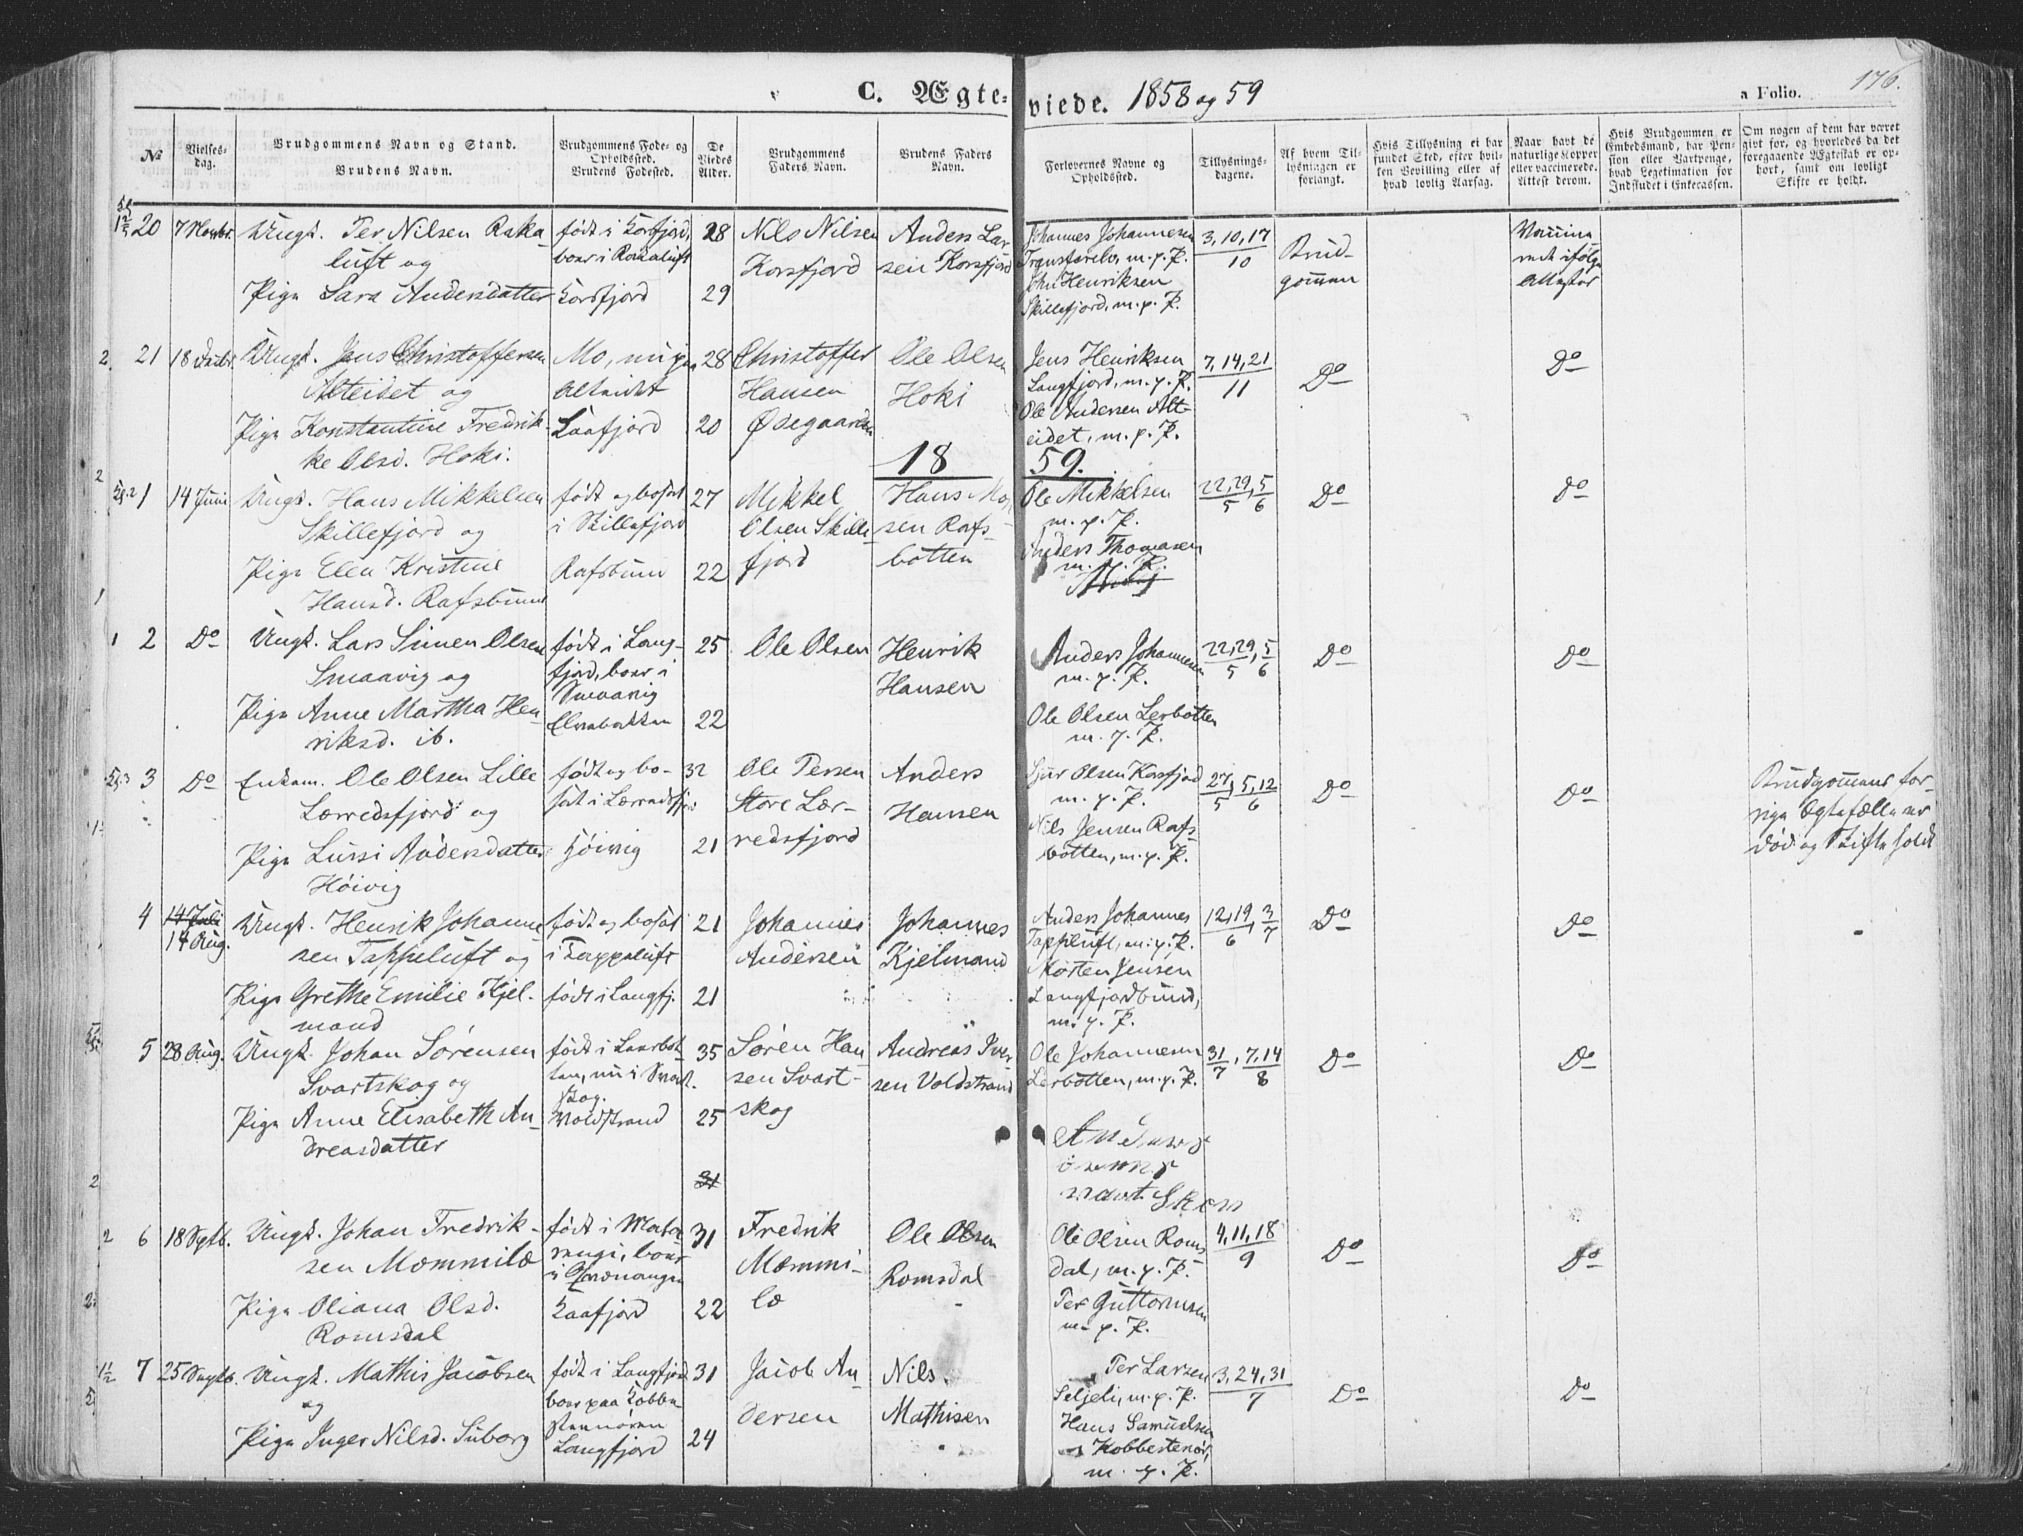 C. Ægteviede. 1858 og 59
a Folio. 176.
No
Vielsesdag.
Brudgommens Navn og Stand.
Brudens Navn.
Brudgommens Føde- og
Opholdssted.
Brudens Fødested.
De
Viedes
Alder.
Brudgommens
Faders Navn.
Brudens Faders
Navn.
Forlovernes Navne og
Opholdssted.
Tillysnings-
dagene.
Af hvem Til-
lysningen er
forlangt.
Hvis Tillysning ei har
fundet Sted, efter hvil-
ken Bevilling eller af
hvad lovlig Aarsag.
Naar havt de
naturlige Kopper
eller vaccinerede.
Attest derom.
Hvis Brudgommen er
Embedsmand, har Pen-
sion eller Vartpenge,
hvad Legetimation for
Indskudet i Enkecassen.
Om nogen af dem har været
gift før, og hvorledes da det
foregaaende Ægteskab er op-
hørt, samt om lovligt
Skifte er holdt.
20 7 Novbr. Ungk. Per Nilsen Raka-
luft og
Pige Sara Andersdatter
født i Korsfjord,
boer i Rakaluft
Korsfjord
28
29
Nils Nilsen
Korsfjord
Anders Lar-
sen Korsfjord
Johannes Johannesen
m. p. P.
John Henriksen
Skillefjord, m. p. P.
3, 10, 17
10
Brud-
gommen
21 18 Ungk. Jens Christoffersen
Alteidet og
Pige Konstantine Fredrik-
ke Olsd. Hoki.
Mo, nu paa
Alteidet
Kaafjord
28
20
Christoffer
Hansen
Ødegaarden
Ole Olsen
Hoki
Jens Henriksen
Langfjord, m. p. P.
Ole Andersen Alt-
eidet, m. p. P.
7, 14, 21
11
Do
Do
1859.
1 14 Juni Ungk. Hans Mikkelsen
Skillefjord og
Pige Elen Kristine
Hansd. Rafsbunn
født og bosat
i Skillefjord
Rafsbunn
27
22
Mikkel
Olsen Skille-
fjord
Hans
sen Rafs-
botten
Ole Mikkelsen
m. p. P.
Anders Thomasen
m. p. P.
22, 29, 5
5 6
Do
Do
2 Do Ungk. Lars Simen Olsen
Smaavig og
Pige Anne Martha Hen-
riksd. ib.
født i Lang-
fjord, boer i
Smaavig
Elvebakken
25
22
Ole Olsen
Henrik
Hansen
Anders Johannesen
m. p. P.
Ole Olsen Lerbotten
m. p. P.
22, 29, 5
5 6
Do
Do
3 Do Enkem. Ole Olsen Lille
Lærredsfjord og
Pige Lussi Andersdatter
Høivig
født og bo-
sat i Lærredsfj.
Høivig
32
21
Ole Persen
Store Lær-
redsfjord
Anders
Hansen
Sjur Olsen Korsfjord
m. p. P.
Nils Jensen Rafs-
botten, m. p. P.
27, 5, 12
5 6
Do
Do
Brudgommens for-
rige Ægtefælle er
død og Skifte holdt
4 14 Juli
14 Aug. Ungk. Henrik Johanne-
sen Tappeluft og
Pige Grethe Emilie Kjel-
mand
født og bosat
i Tappeluft
født i Langfj.
21
21
Johannes
Andersen
Johannes
Kjelmand
Anders Johannes
Tappeluft, m. p. P.
Morten Jensen
Langfjordbund,
m. p. P.
12, 19, 3
6 7
Do
Do
5 28 Aug. Ungk. Johan Sørensen
Svartskog og
Pige Anne Elisabeth An-
dreasdatter
født i Leerbot-
ten, nu i Svart-
skog.
Voldstrand
35
25
Søren Han-
sen Svart-
skog
Andreas Iver-
sen Voldstrand
Ole Johannesen
Lerbotten, m. p. P.
31, 7, 14
7 8
Do
Do
31
6 18 Septb. Ungk. Johan Fredrik-
sen Mommilæ
Pige Oliana Olsd.
Romsdal
født i
boer
i
Kaafjord
31
22
Fredrik
Mommi-
læ
Ole Olsen
Romsdal
Ole Olsen Roms-
dal, m. p. P.
Per Guttormsen
m. p. P.
4, 11, 18
9
Do
Do
7 25 Septb. Ungk. Mathis Jacobsen
og
Pige Inger Nilsd. Suborg
født i Langfjord
boer paa Kobbe-
Langfjord
31
24
Jacob An-
dersen
Nils
Mathisen
Per Larsen
Seljeli, m. p. P.
Hans Samuelsen
Kobbestenør,
m. p. P.
3, 24, 31
7
Do
Do